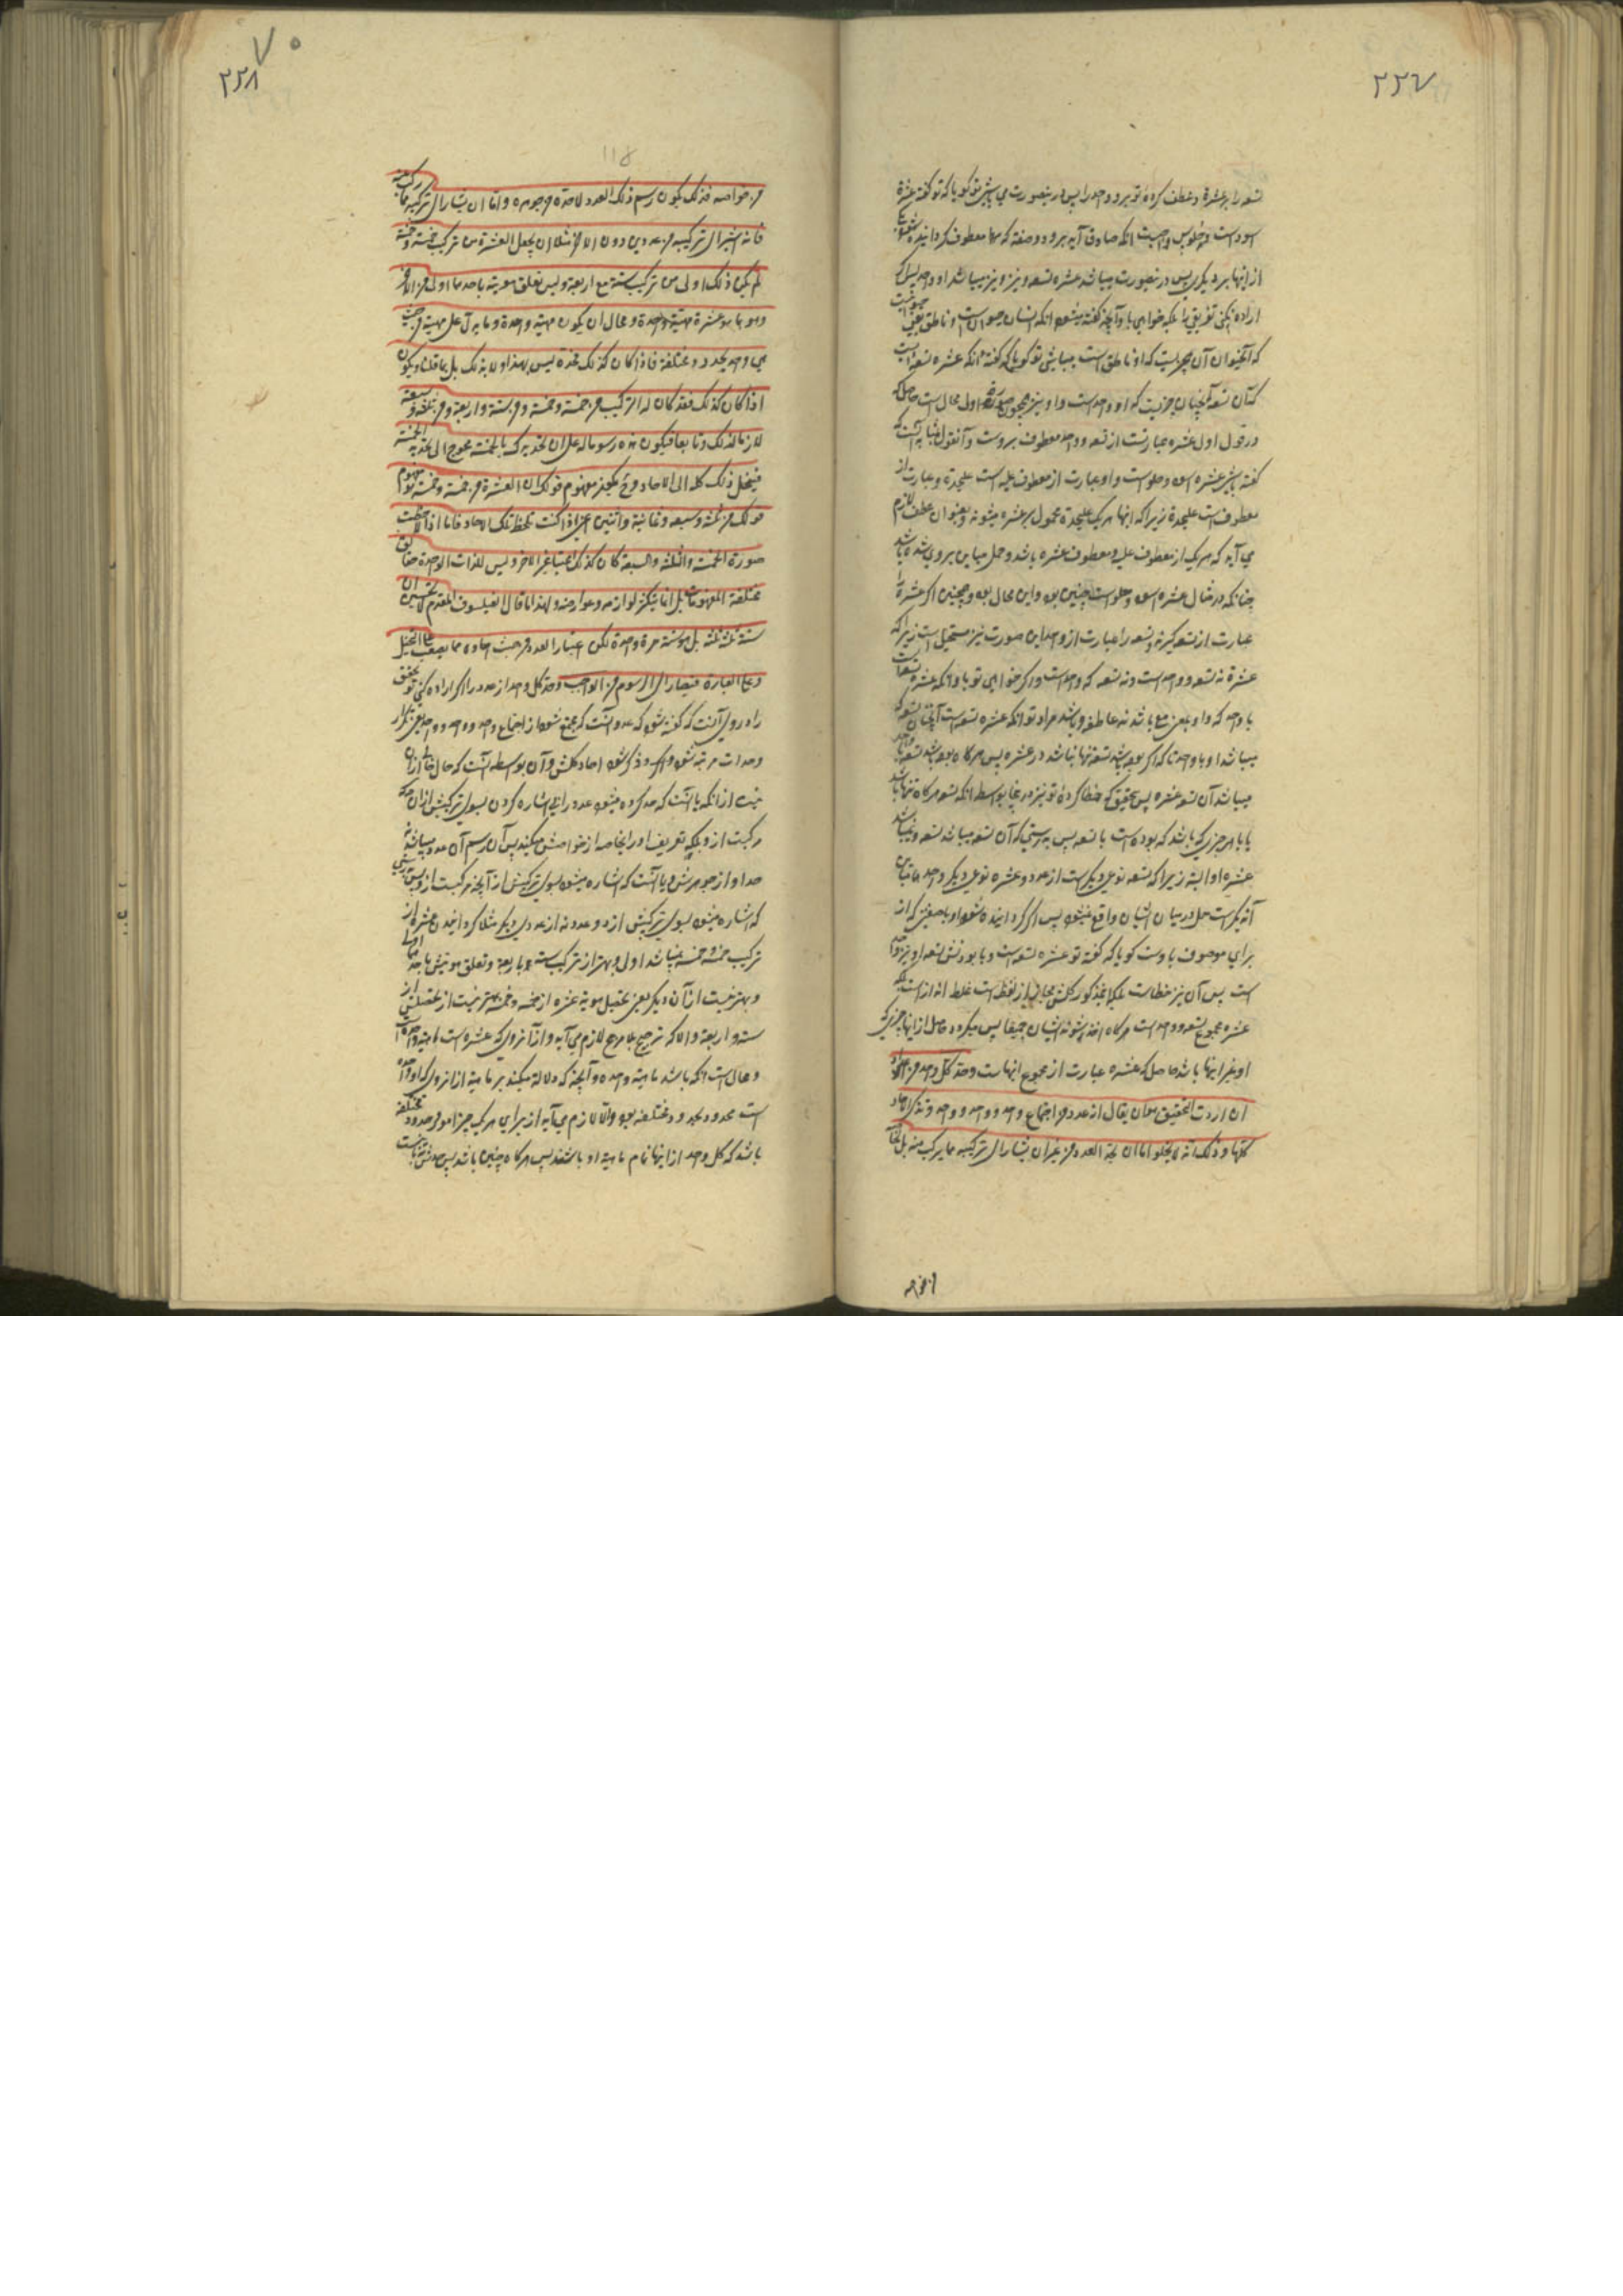 ۲۲۷
تسعه را بر عشرة و عطف کرده تو برو واحد را پس درینصورت می باشی تو گویا که تو گفته عشرة
اسود است و حلو پس واجبست انکه صادق آید برو دو صفته که مها معطوف گردانیده شده
از اینها بر دیگری پس درینصورت میباشد عشره تسعه و نیز میباشد او واحد پس اگر
اراده نکنی تعریف را بلکه خواهی باو آنچه گفته میشود انکه انسان حیوان است و ناطق یعنی حیوانیست
که آنحیوان آن چیزیست که او ناطق است میباشی تو گویا که گفته انکه عشره تسعه ایست
که آن تسعه آنچنان چیزیست که او واحد است و او نیز همچون صورت اول محال است حاصل که
در قول اول عشره عبارتست از تسعه و واحد معطوف بروست و آنقول بمثابه آنست که
گفته باشی عشره اسود و حلو است و او عبارت از معطوف علیه است علیحدة و عبارت از
معطوف است علیحدة زیرا که اینها هر یک علیحدة محمول بر عشره میشوند و بعنوان عطف لازم
می آید که هر یک از معطوف علیه و معطوف عشره باشد و حمل مباین برو شده باشد
چنانکه در مثال عشره اسود و حلو است چنین بود و این محال بود و همچنین اگر عشرة را
عبارت از تسعه گیرند و تسعه را عبارت از واحد این صورت نیز مستحیل است زیرا که
عشرة نه تسعه و واحد است و نه تسعه که واحد است و اگر خواهی تو باو انکه عشره تسعه است
با واحد که واو بمعنی مع باشد نه عاطفه و باشد مراد تو انکه عشره تسعه است آنچنان تسعه که
میباشد او با واحد تا که اگر بوده باشد تسعه تنها نباشد در عشره پس هرگاه بوده باشد تسعه با واحد
میباشد آن تسعه عشره پس بتحقیق که خطا کردۀ تو نیز درینجا بواسطه انکه تسعه هرگاه تنها باشد
یا با هر چیزی که باشد که بوده است با تسعه پس بدرستی که آن تسعه میباشد تسعه و نمیباشد
عشره او البته زیرا که تسعه نوعی دیگر است از عدد و عشره نوعی دیگر و احد متباین
آن دیگر است حمل در میان ایشان واقع نمیشود پس اگر گردانیده شود او با صفتی که از
برای موصوف باوست گویا که گفته تو عشره تسعه است و با بودنش تسعه او نیز واحد
است پس آن نیز خطاست بلکه اینمذکور کلش مجاز از لفظ است غلط انداز است بلکه
عشره مجموع تسعه و واحد است هرگاه اخذ شوند ایشان جمیعا پس میگردد حاصل از اینها چیزی که
او غیر اینها باشد حاصل که عشره عبارت از مجموع اینهاست و حد کل واحد من الاعداد
ان اردت التحقیق هو ان یقال انه عدد من اجتماع واحد و واحد و واحد و تذکر الاحاد
کلها و ذلک انه لا یخلو اما ان یحد العدد من غیر ان یشار الی ترکیبه مما یرکب منه بل بخاصة
۲۲۸
۷۰
۱۱۸
من خواصه فذلک یکون رسم ذلک العدد لا حده من جوهره و اما ان یشار الی ترکیبه مما رکب منه
فانه اشیر الی ترکیبه من عددین دون الاخر مثلا ان یجعل العشرة من ترکیب خمسة و خمسة
لم یکن ذلک اولی من ترکیب ستة مع اربعة و لیس تعلق هویته باحدهما اولی من الاخر
و هو بما هو عشرة مهیة واحدة و محال ان یکون مهیة واحدة و ما یدل علی مهیة من حیث
هی واحدة حدود مختلفة فاذا کان کذلک فحده لیس بهذا و لا بذلک بل بما قلنا و یکون
اذا کان کذلک فقد کان له الترکیب من خمسة و خمسة و من ستة و اربعة و من ثلثة و سبعة
لازما لذلک و تابعا فیکون هذه رسوما له علی ان تحدیدک بالخمسة محوج الی تحدید الخمسة
فینحل ذلک کله الی الاحاد و ح یکون مفهوم قولک ان العشرة من خمسة و خمسة هو مفهوم
قولک من ثلثة و سبعة و ثمانیة و اثنین اعنی اذا کنت تلحظ تلک الاحاد فاما اذا لاحظت
صورة الخمسة و الثلثة و السبعة کان کذلک اعتبارا غیر الاخر و لیس للذات الواحدة حقائق
مختلفة المفهومات بل انما یتکثر لوازمه و عوارضه و لهذا ما قال الفیلسوف المقدم لا تحسبن ان
ستة ثلثة ثلثة بل هو ستة مرة واحدة لکن اعتبار العدد من حیث احاده مما یصعب علی التخیل
و علی العبارة فیصار الی الرسوم فمن الواجب و حد کل واحد از عدد را اگر اراده کنی تو تحقیق
را در وی آنست که گفته شود که عددیست که مجتمع شود از اجتماع واحد و واحد و واحد یعنی تکرار
وحدات مرتبه شود و ذکر شود احاد کلش و آن بواسطه آنست که حال خالی ازان
نیست از انکه یا آنست که حد کرده میشود عدد را بی اشاره کردن بسوی ترکیبش ازان چه
مرکبست ازو بلکه تعریف او را بخاصه از خواصش میکند پس آن رسم آن عدد میباشد نه
حد او از جوهرش و یا آنست که اشاره میشود بسوی ترکیبش از آنچه مرکبست ازو پس بدرستی
که اشاره میشود بسوی ترکیبش از دو عدد نه از عددی دیگر مثلا گردانیدن عشره از
ترکیب خمسه و خمسه نمیباشد اولی و بهتر از ترکیب سته و با اربعه و تعلق هویتش با حد اینها
و بهتر نیست از آن دیگر یعنی تحصیل هویة عشره از خمسه و خمسه بهتر نیست از تحصیلش از
سته و اربعة و الا که ترجیح بلا مرجح لازم می آید و از آنروی که عشره است ماهیة واحده است
و محال است انکه باشد ماهیة واحده و آنچه که دلالة میکند بر ماهیة از انروی که او واحده
است محدود بحدود مختلفه بود و الا لازم می آید از برای هر یک چیز امور و حدود مختلفه
باشد که کل واحد از اینها تمام ماهیة او باشند پس هرگاه چنین باشد پس حدش نیست